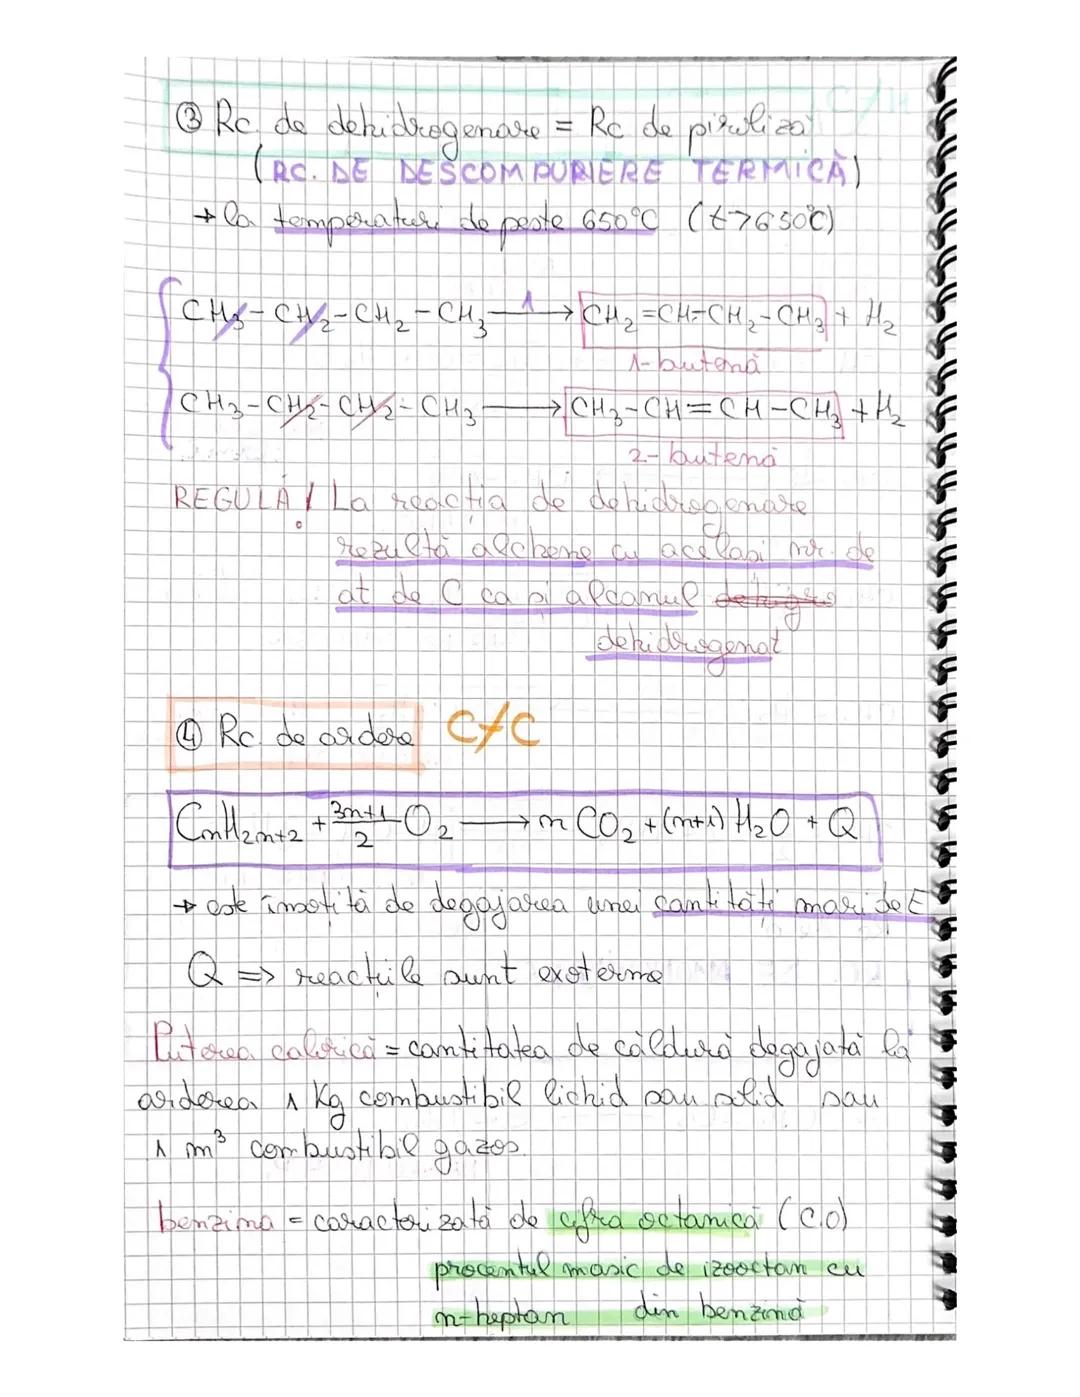 ③ Rc. de dehidrogenare = Rc de piroliză C/H
(RC. DE DESCOMPUNERE TERMICĂ)
→ la temperaturi de peste 650°C (t>650°C)
CH3-CH2-CH2-CH3 —1→ CH2=CH-CH2-CH3 + H2
1-butenă
CH3-CH2-CH2-CH3 → CH3-CH=CH-CH3 + H2
2-butenă
REGULĂ! La reacția de dehidrogenare
rezultă alchene cu același nr. de
at de C ca și alcanul dehigro
dehidrogenat
④ Rc. de ardere C/C
CnH2n+2 + 3n+1/2 O2 → n CO2 + (n+1) H2O + Q
→ este însoțită de degajarea unei cantități mari de E
Q => reacțiile sunt exoterme
Puterea calorică = cantitatea de căldură degajată la
arderea 1 Kg combustibil lichid sau solid sau
1 m³ combustibil gazos.
benzina = caracterizată de cifra octanică (C.O)
procentul masic de izooctan cu
n-heptan din benzină